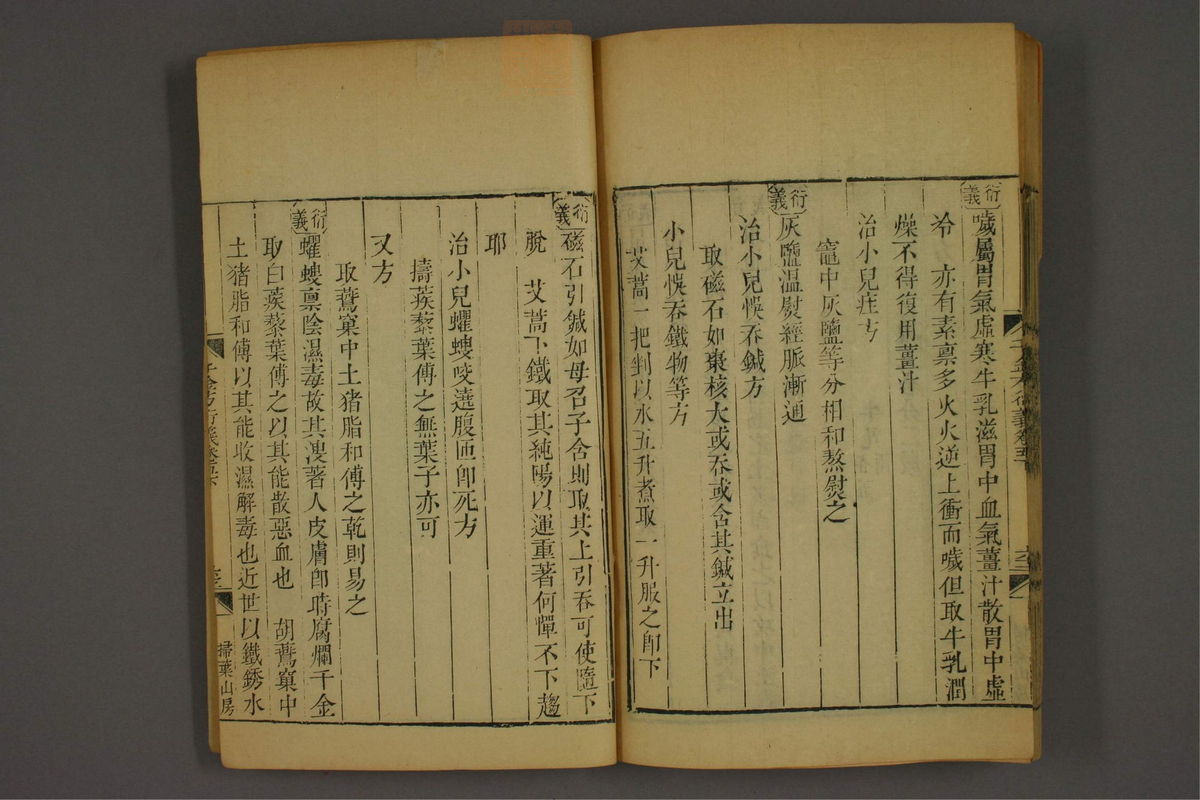 衍義 噦屬胃氣虛寒牛乳滋胃中血氣薑汁散胃中虛
冷 亦有素禀多火火逆上衝而噦但取牛乳潤
燥不得復用薑汁
治小兒疰方
竈中灰鹽等分相和熬熨之
衍義 灰鹽温熨經脈漸通
治小兒悞吞鍼方
取磁石如棗核大或吞或含其鍼立出
小兒悞吞鐵物等方
艾蒿一把剉以水五升煮取一升服之即下
衍義 磁石引鍼如母召子含則取其上引吞可使隨下
脫 艾蒿下鐵取其純陽以運重著何憚不下趨
耶
治小兒蠼螋咬遶腹匝即死方
擣蒺藜葉傅之無葉子亦可
又方
取鷰窠中土猪脂和傅之乾則易之
衍義 蠼螋禀陰濕毒故其溲著人皮膚即時腐爛千金
取白蒺藜葉傅之以其能散惡血也 胡鷰窠中
土猪脂和傅以其能收濕解毒也近世以鐵銹水
千金方衍義卷五
掃葉山房